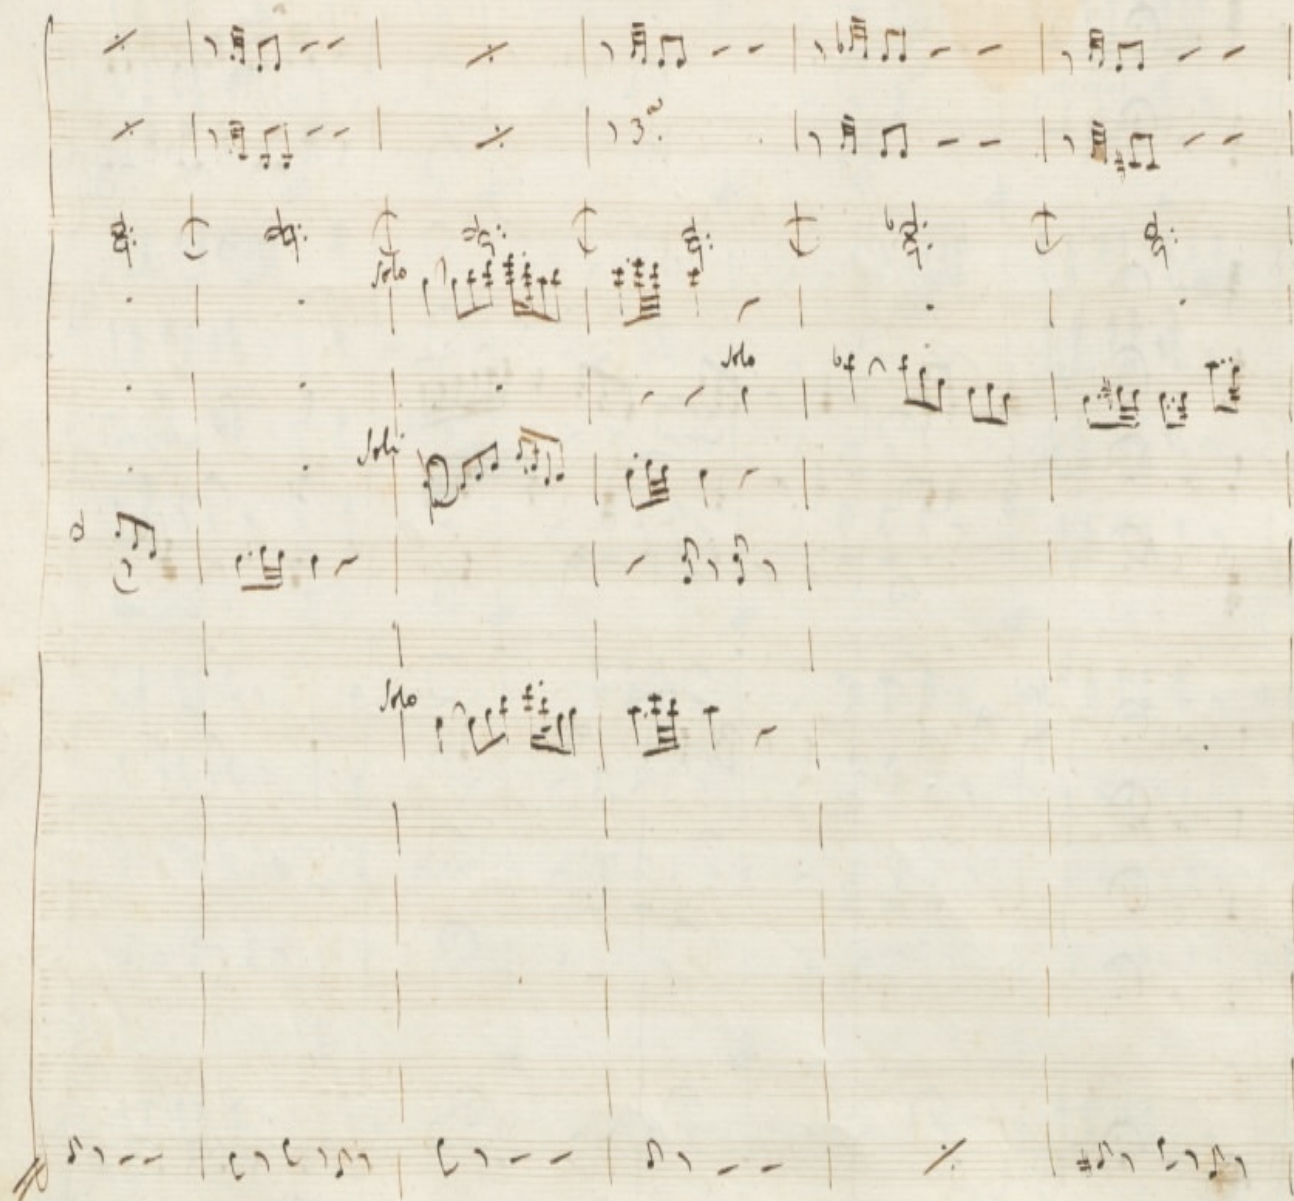 Solo
Solo
Soli
Solo